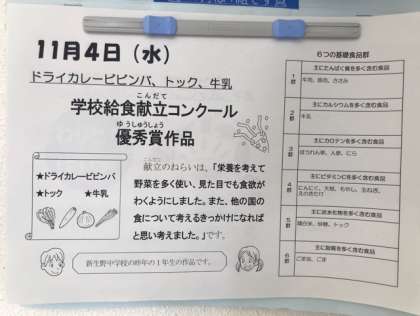 11月4日（水）
ドライカレービビンバ、トック、牛乳
こんだて
学校給食献立コンクール
ゆうしゅうしょう
優秀賞作品
★ドライカレービビンバ
★トック ★牛乳
こんだて
献立のねらいは、「栄養を考えて
野菜を多く使い、見た目でも食欲が
わくようにしました。また、他の国の
食について考えるきっかけになれば
と思い考えました。」です。
新生野中学校の昨年の1年生の作品です。
6つの基礎食品群
1群
主にたんぱく質を多く含む食品
牛肉、豚肉、ささみ
2群
主にカルシウムを多く含む食品
牛乳
3群
主にカロテンを多く含む食品
ほうれん草、人参、にら
4群
主にビタミンCを多く含む食品
にんにく、大根、もやし、玉ねぎ、
えのきたけ
5群
主に炭水化物を多く含む食品
精白米、砂糖、トック
6群
主に脂質を多く含む食品
ごま油、ごま